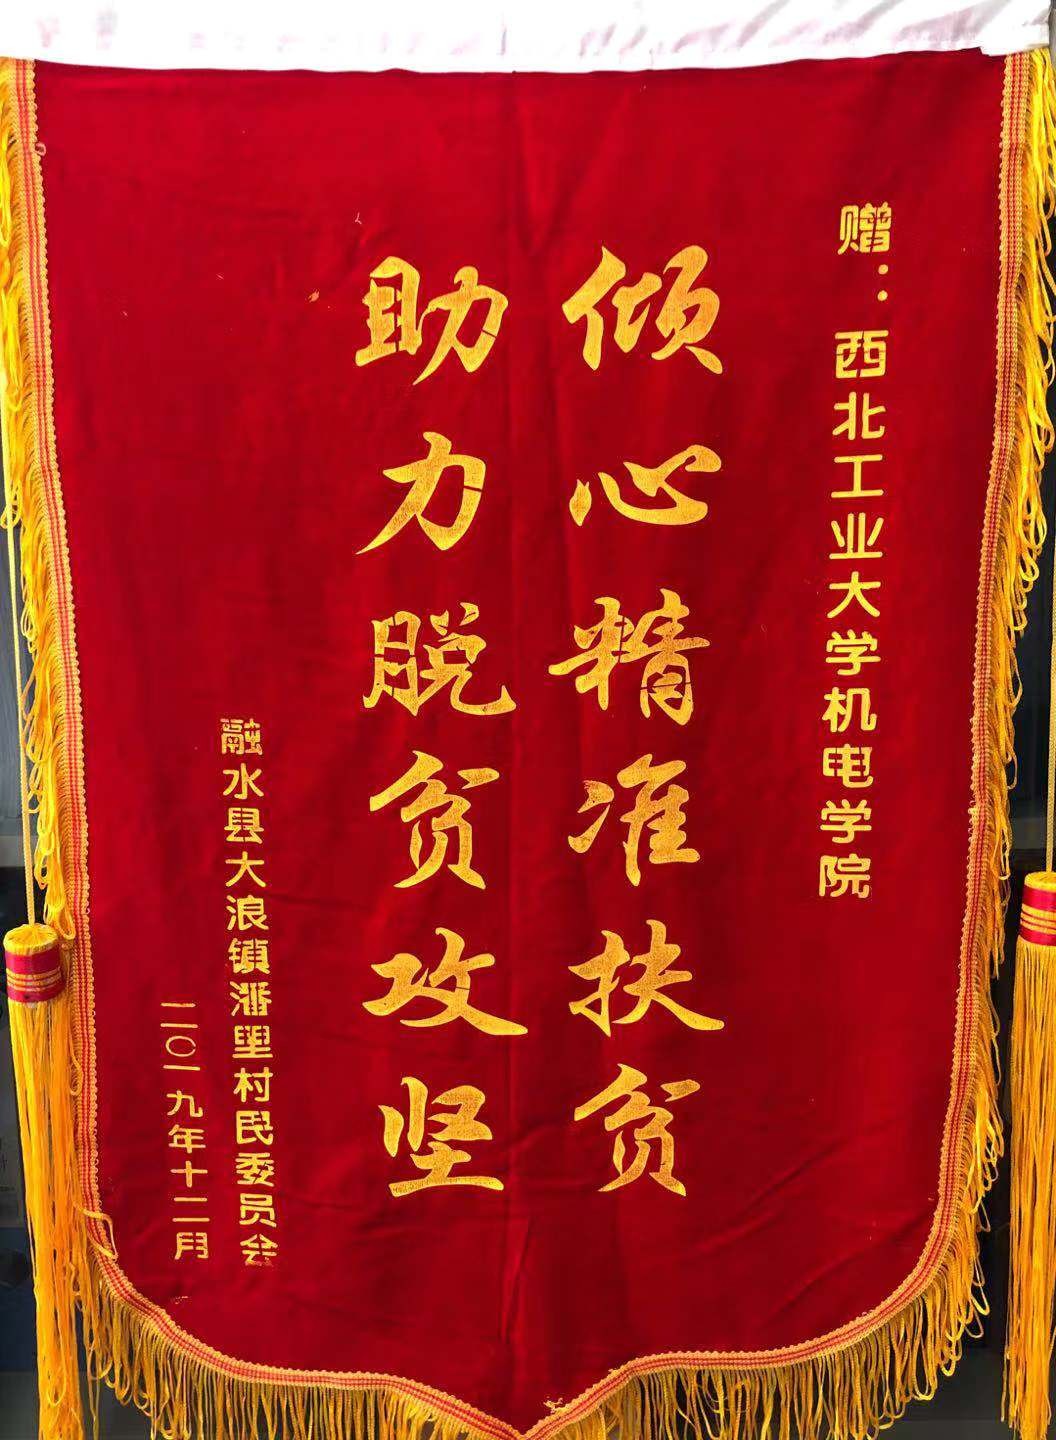 赠：西北工业大学机电学院
倾心精准扶贫
助力脱贫攻坚
融水县大浪镇潘里村民委员会
二〇一九年十二月